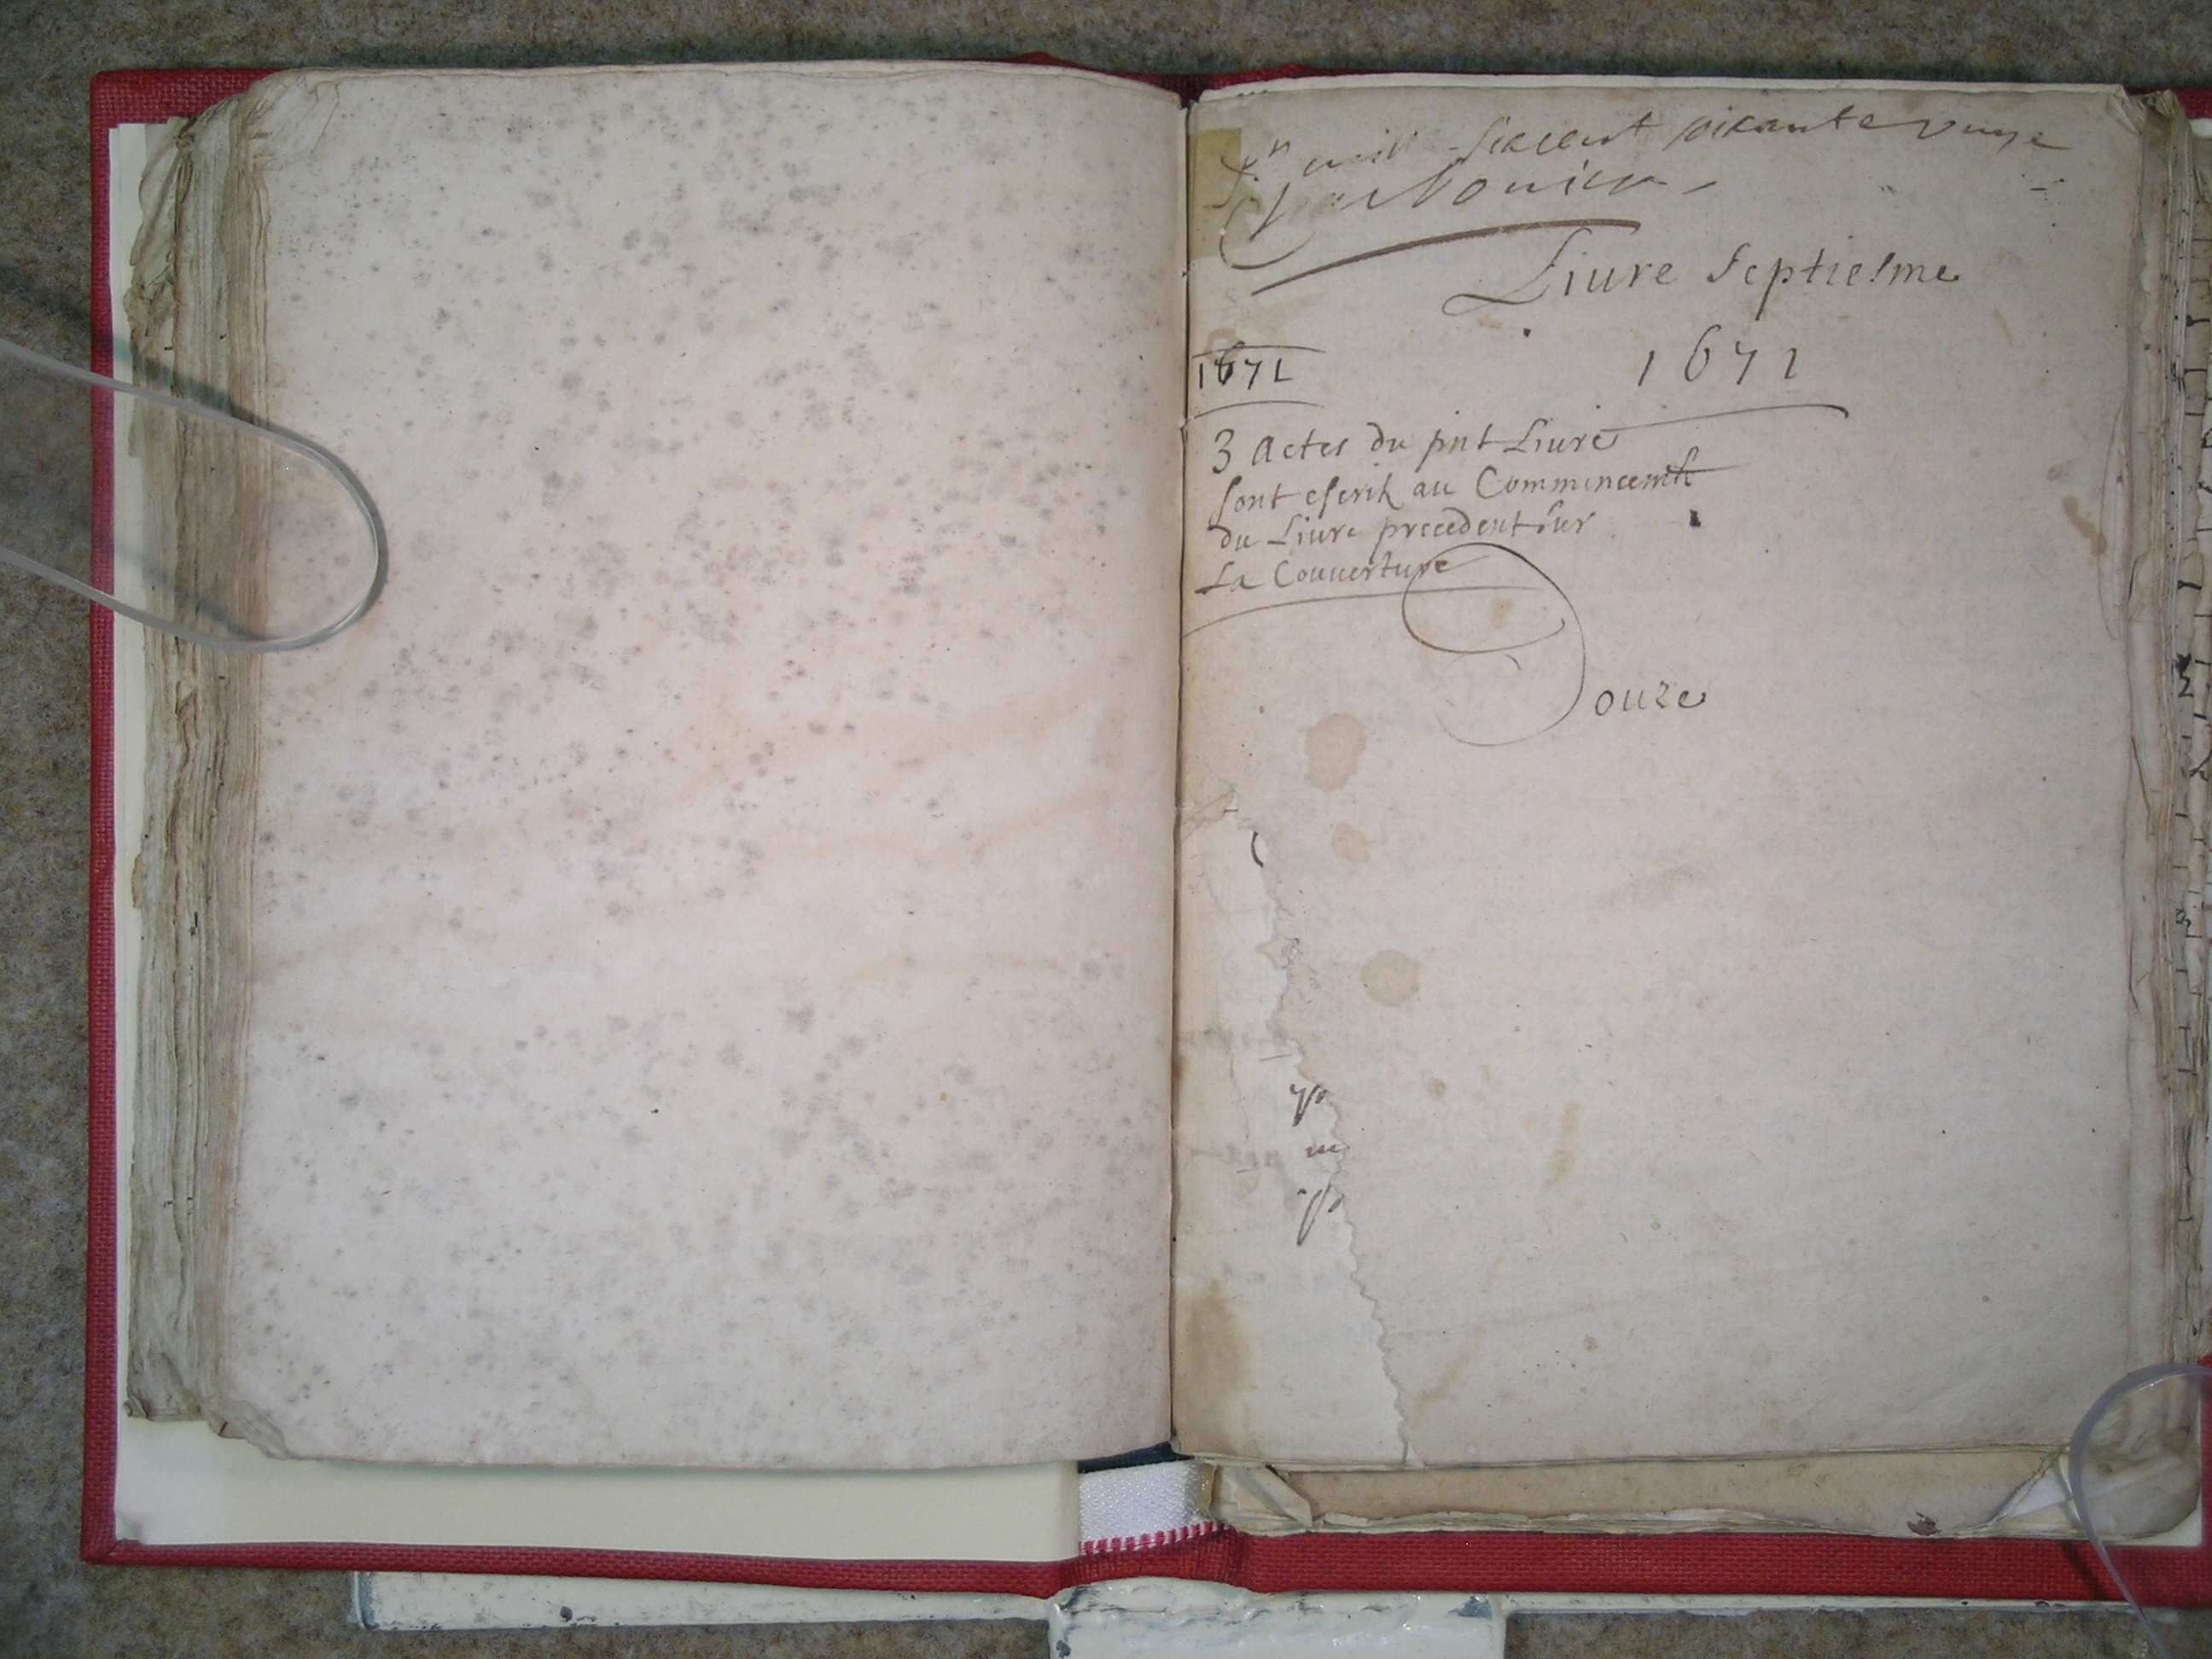 sixcent soixante unze
Liure Septiesme
1671
1671
3 Actes du pnt Liure
sont escrit au Commincemt
du Liure precedent sur
La Couuerture
Douze